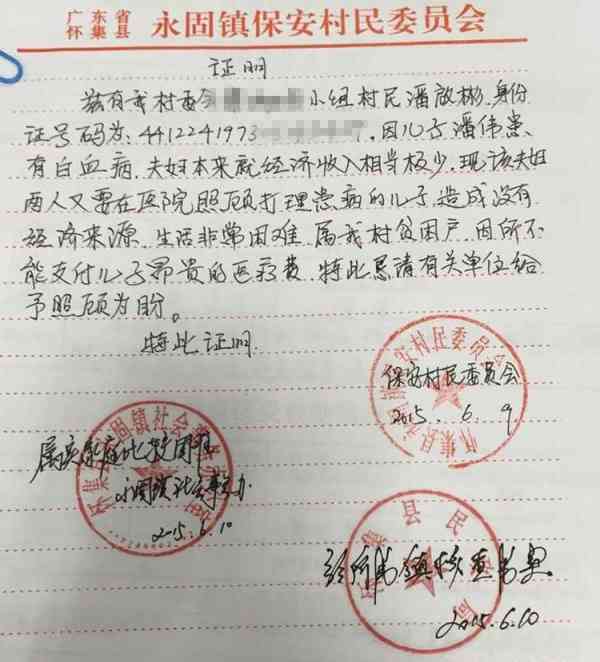 广东省
怀集县 永固镇保安村民委员会
证明
兹有我村委会 小组村民潘放彬.身份
证号码为:4412241973 .因儿子潘伟患
有白血病.夫妇本来就经济收入相当极少.现该夫妇
两人又要在医院照顾打理患病的儿子.造成没有
经济来源.生活非常困难.属我村贫困户.因所不
能支付儿子昂贵的医疗费.特此恳请有关单位给
予照顾为盼。
特此证明
保安村民委员会
2015.6.9
属实家庭比较困难
永固镇社会事务办
2015.6.10
镇核查
2015.6.10